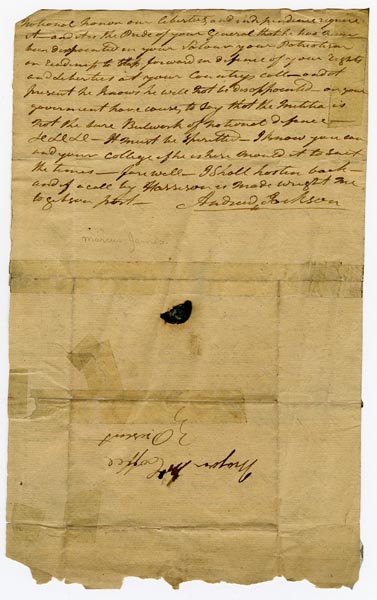 national honor our liberties and independence require
it and it is the Pride of your General that he has never
been disappointed in your Valour your Patriotism
or readiness to step forward in defence of your rights
and liberties at your Country's call and at
present he knows he will not be disappointed - or your
government have cause to say that the militia is
not the sure Bulwork of national defence -
&c &c &c - It must be spirited - I know you can
and your college of he is here mould it to suit
the times - fare well - I shall hasten back -
and if a call by Harrison is made wright me
to Gibson port -
Andrew Jackson
Marcus
Major Coffee
Present